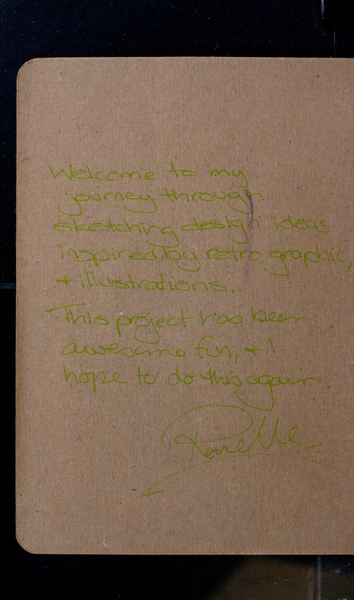 Welcome to my
journey through
sketching design ideas
inspired by retro graphic
+ illustrations.
This project has been
awesome fun, + I
hope to do this again